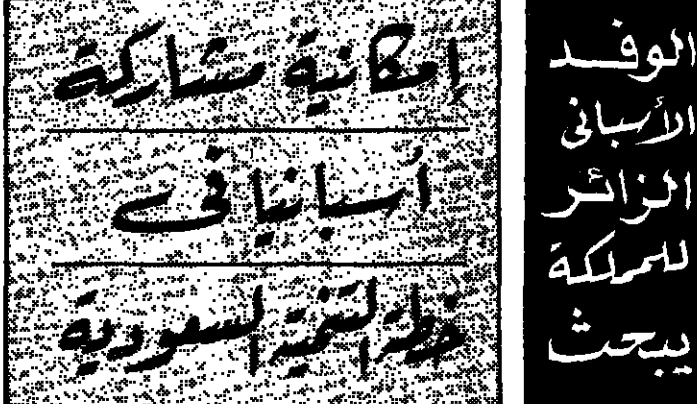 الوفد
الأسبانى
الزائر
للمملكة
يبحث
إمكانية مشاركة
أسبانيا فى
خطة التنمية السعودية